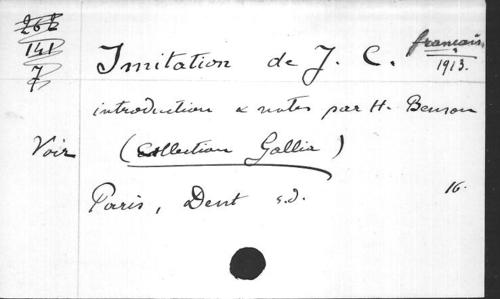 262
141
7
Imitation de J. C. français
1913.
introduction & notes par H. Benson
Voir (Collection Gallia)
Paris, Dent s.d. 16.